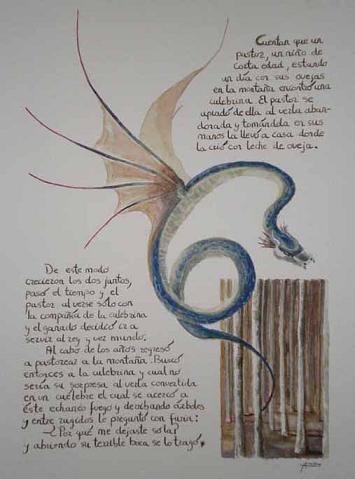 Cuentan que un
pastor, un niño de
corta edad, estando
un día con sus ovejas
en la montaña encontró una
culebrina. El pastor se
apiadó de ella al verla aban-
donada y tomándola en sus
manos la llevó a casa donde
la crió con leche de oveja.
De este modo
crecieron los dos juntos,
pasó el tiempo y el
pastor al verse solo con
la compañía de la culebrina
y el ganado decidió ir a
servir al rey y ver mundo.
Al cabo de los años regresó
a pastorear a la montaña. Buscó
entonces a la culebrina y cual no
sería su sorpresa al verla convertida
en un cuélebre el cual se acercó a
éste echando fuego y derribando árboles
y entre rugidos le preguntó con furia:
-¿Por qué me dejaste sola?
y abriendo su terrible boca se lo tragó.